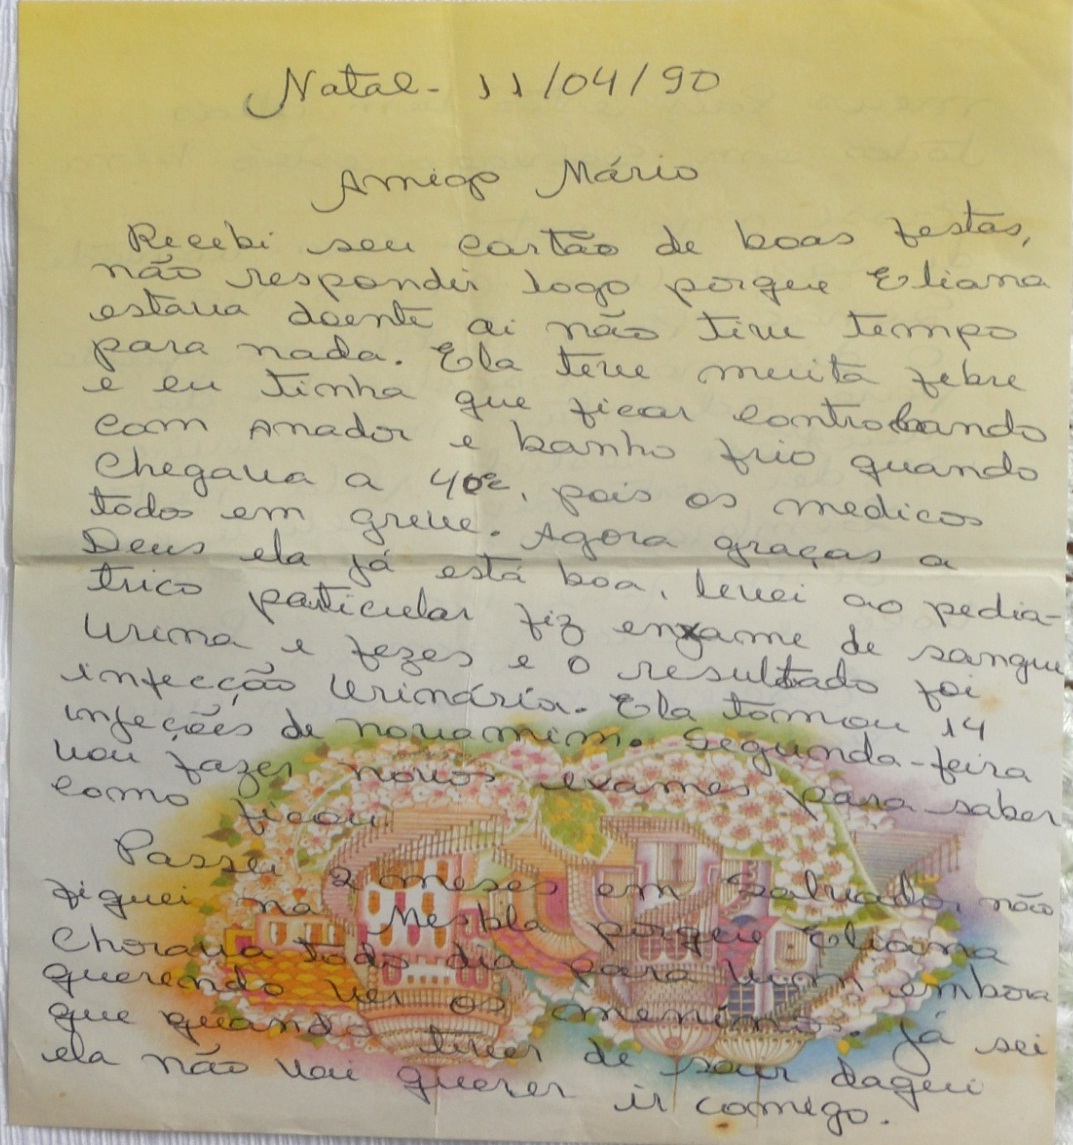 Natal - 11/04/90
Amigo Mário
Recebi seu cartão de boas festas,
não respondi logo porque Eliana
estava doente ai não tive tempo
para nada. Ela teve muita febre
e eu tinha que ficar controlando
com Anador e banho frio quando
chegava a 40º, pois os medicos
todos em greve. Agora graças a
Deus ela já está boa, levei ao pedia-
trico particular fiz enxame de sangue
urina e fezes e o resultado foi
infecção urinária. Ela tomou 14
infeções de novamim. Segunda-feira
vou fazer novos exames para saber
como ficou.
Passei 2 meses em Salvador, não
fiquei na Mesbla porque Eliana
chorava todo dia para vim embora
querendo ver os meninos. Já sei
que quando tiver de sair daqui
ela não vai querer ir comigo.